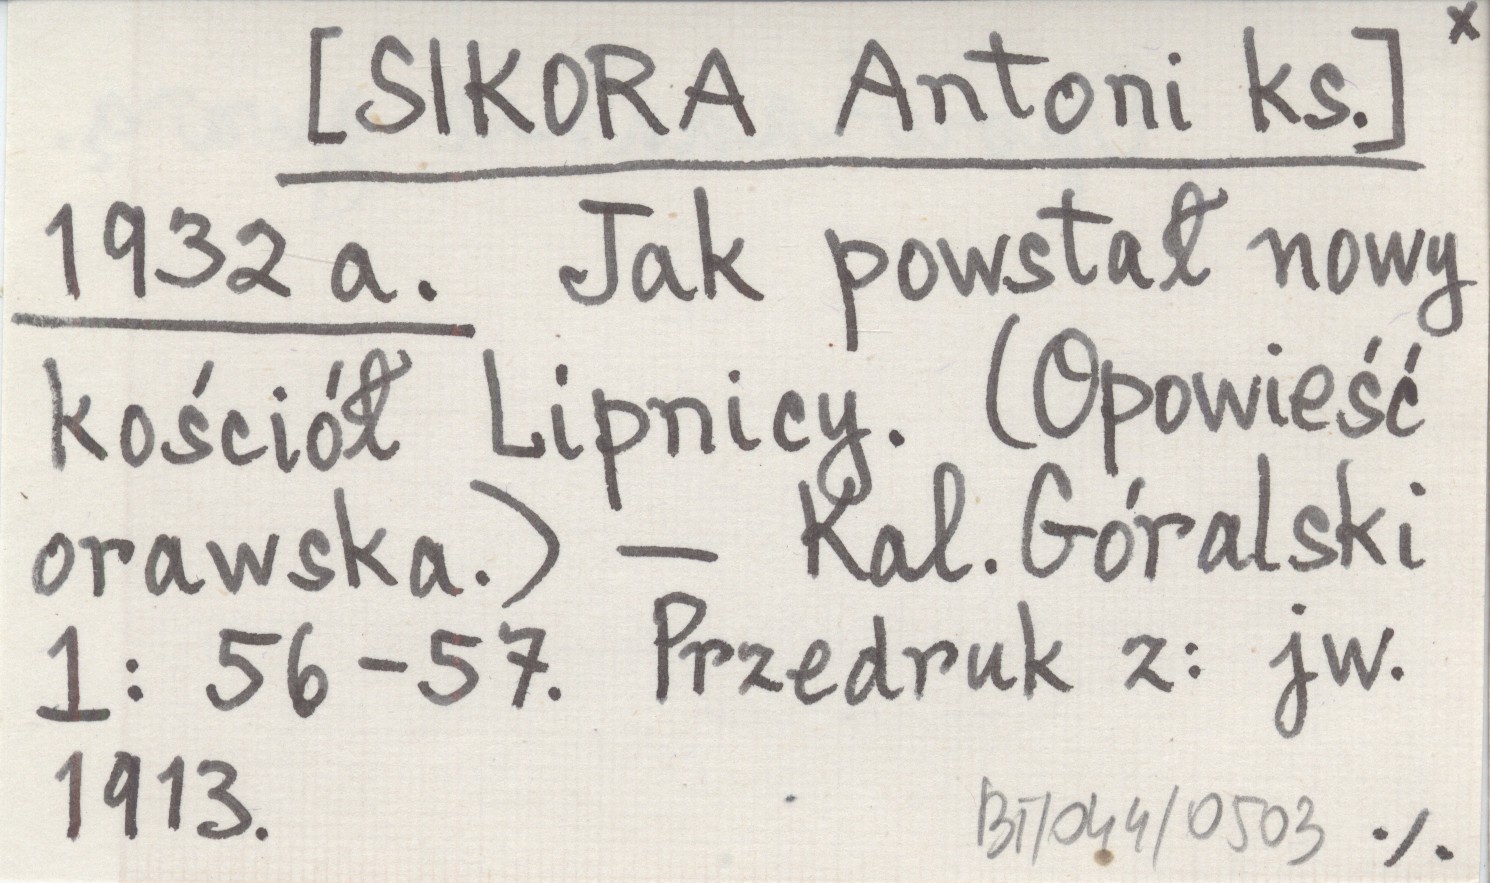 x
[SIKORA Antoni ks.]
1932 a. Jak powstał nowy
kościół Lipnicy. (Opowieść
orawska.) — Kal. Góralski
1: 56-57. Przedruk z: jw.
1913.
BI/044/0503 ./.